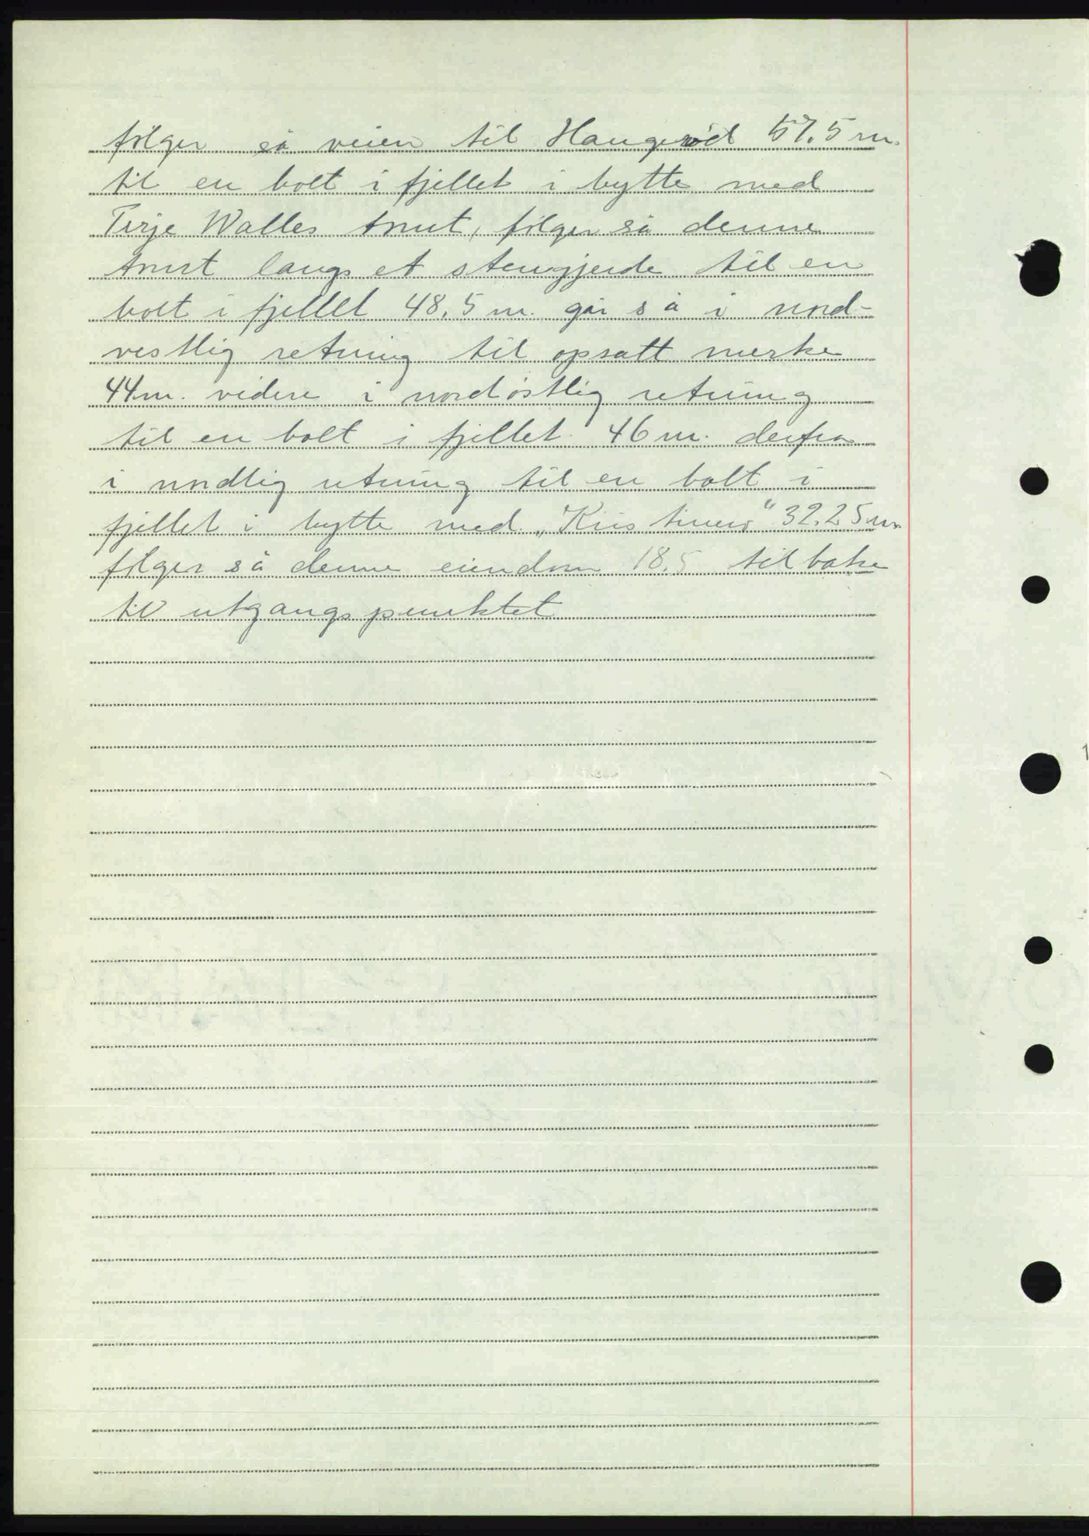 følger så veien til Haugerød 57.5 m.
til en bolt i fjellet i bytte med
Terje Walles tomt, følger så denne
tomt langs et stengjerde til en
bolt i fjellet 48,5 m. går så i nord-
vestlig retning til opsatt merke
44m. videre i nordøstlig retning
til en bolt i fjellet 46 m. derfra
i nordlig retning til en bolt i
fjellet i bytte med „ " 32.25 m
følger så denne eiendom 18.5 tilbake
til utgangspunktet
1